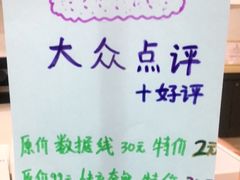 大众点评
+好评
原价数据线30元 特价 2元
原价99元
特价